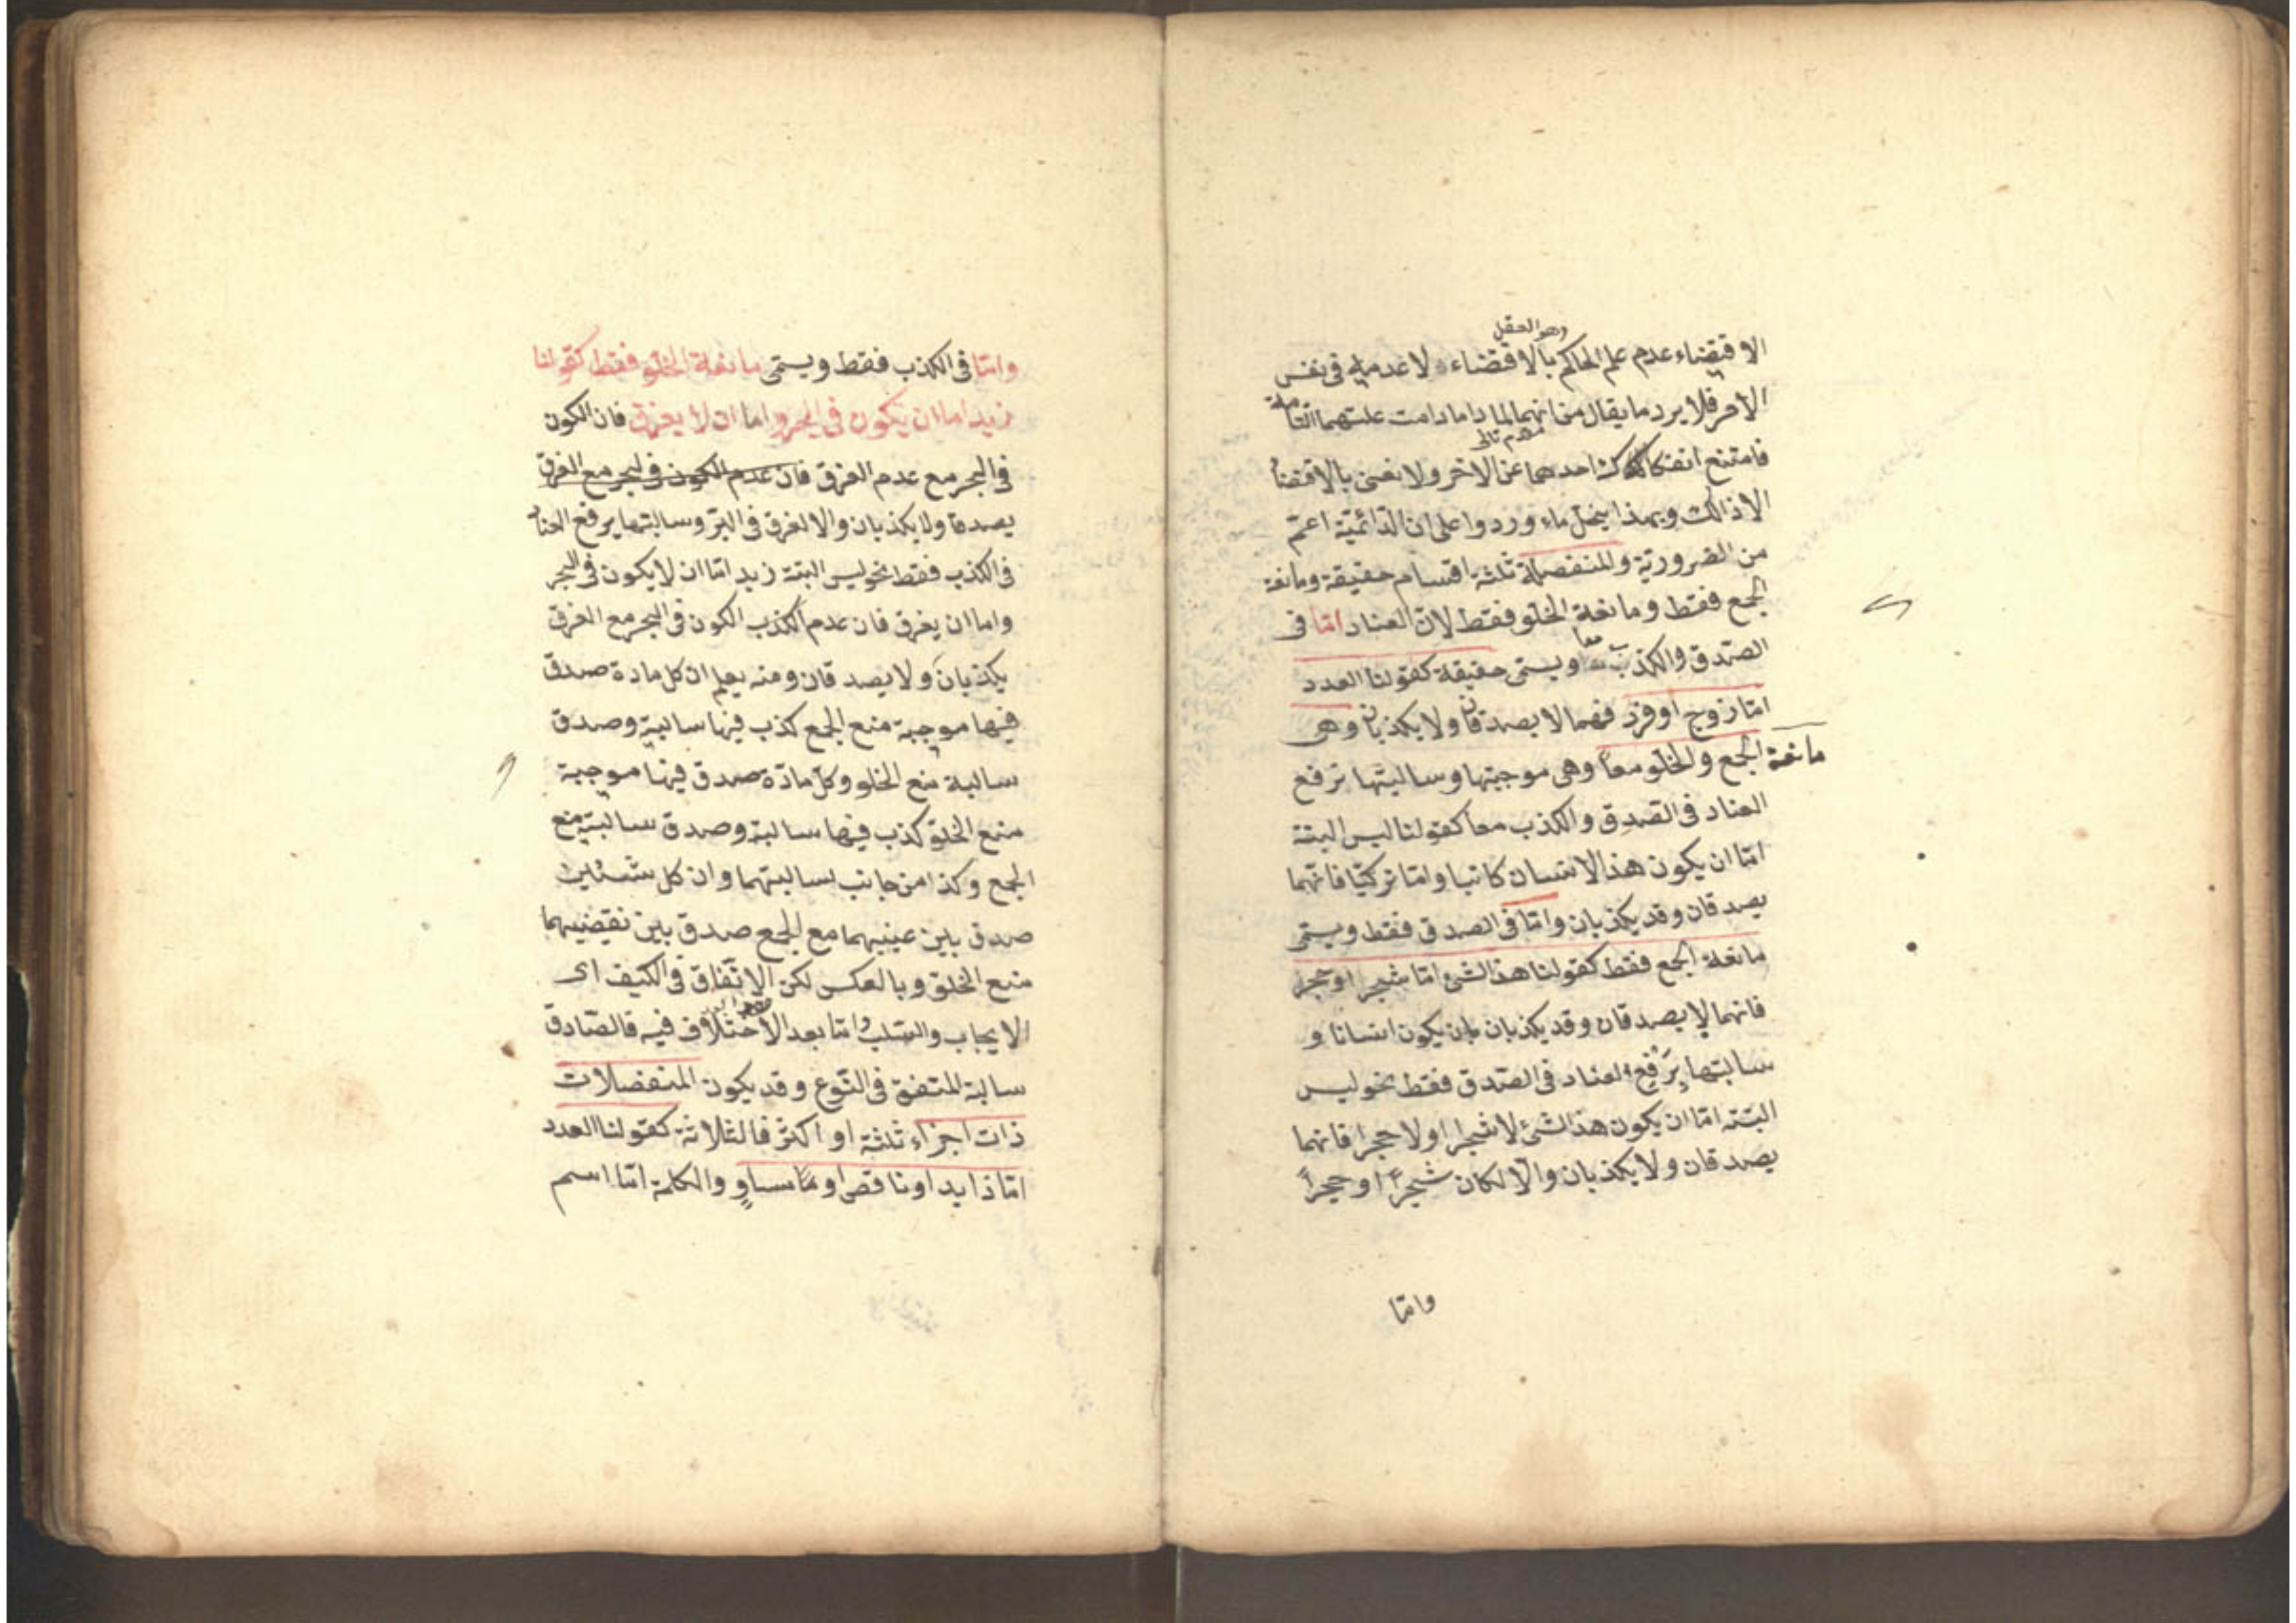 وهو العقل
الاقتضاء عدم علم الحاكم بالاقتضاء لا عدمه في نفس
الامر فلا يرد ما يقال من انهما لما داما دامت علتهما التامة
مقدم تالى
فامتنع انفكاك احدهما عن الاخر ولا نعنى بالاقتضاء
الا ذالك وبهذا ينحل ماء وردوا على ان الدائمية اعم
من الضرورية والمنفصلة ثلثة اقسام حقيقة ومانعة
الجمع فقط ومانعة الخلو فقط لان العناد اما فى
الصدق والكذب معا ويسمى حقيقة كقولنا العدد
اما زوج او فرد فهما لا يصدقان ولا يكذبان وهى
مانعة الجمع والخلو معا وهى موجبتها وسالبتها ترفع
العناد فى الصدق والكذب معا كقولنا ليس البتة
اما ان يكون هذ الانسان كاتبا واما تركيا فانهما
يصدقان وقد يكذبان واما فى الصدق فقط ويسمى
مانعة الجمع فقط كقولنا هذ الشئ اما شجر او حجر
فانهما لا يصدقان وقد يكذبان بان يكون انسانا و
سالبتها يرفع العناد فى الصدق فقط نحو ليس
البتة اما ان يكون هذ الشئ لا شجرا او لا حجرا فانهما
يصدقان ولا يكذبان والا لكان شجرا او حجرا
واما
واما فى الكذب فقط ويسمى مانعة الخلو فقط كقولنا
زيد اما ان يكون فى البحر واما ان لا يغرق فان الكون
فى البحر مع عدم الغرق فان عدم الكون فى البحر مع الغرق
يصدقا ولا يكذبان والا لغرق فى البر وسالبتها يرفع العناد
فى الكذب فقط نحو ليس البتة زيد اما ان لا يكون فى البحر
واما ان يغرق فان عدم الكذب الكون فى البحر مع الغرق
يكذبان ولا يصدقان ومنه يعلم ان كل مادة صدق
فيها موجبة منع الجمع كذب فيها سالبته وصدق
سالبة منع الخلو وكل مادة صدق فيها موجبة
منع الخلو كذب فيها سالبته وصدق سالبة منع
الجمع وكذا من جانب سالبتهما وان كل شيئين
صدق بين عينيهما مع الجمع صدق بين نقيضيهما
منع الخلو وبالعكس لكن الاتفاق فى الكيف اى
الايجاب والسلب واما بعد الاختلاف فيه فالصادق
سالبة للمتفق فى النوع وقد يكون المنفصلات
ذات اجزاء ثلثة او اكثر فالثلاثة كقولنا العدد
اما زايد او ناقص او مساو والكلمة اما اسم